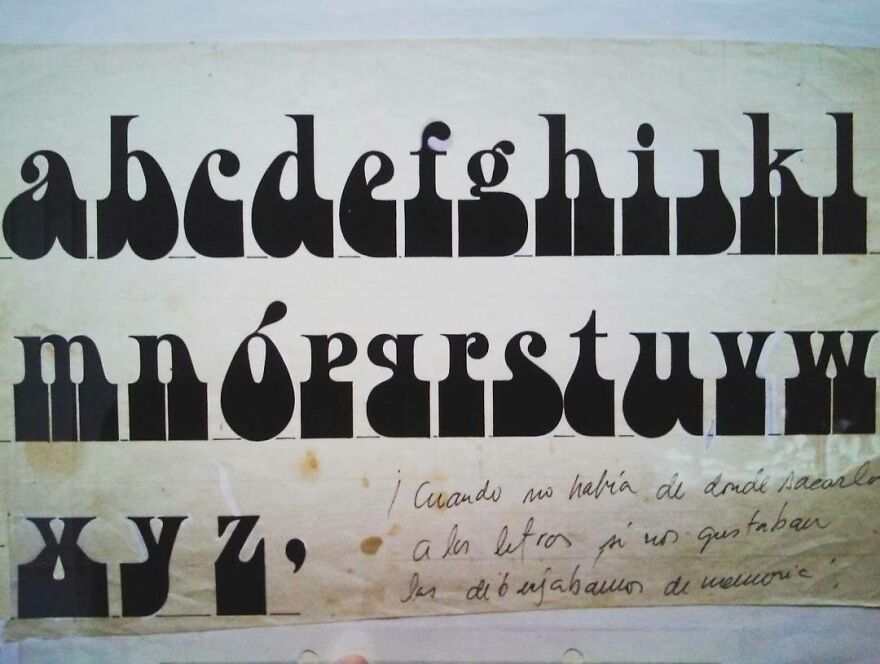 abcdefghijkl
mnópqrstuvw
xyz,
¡Cuando no había de donde
a las letras si nos gustaban
las dibujabamos de memoria!